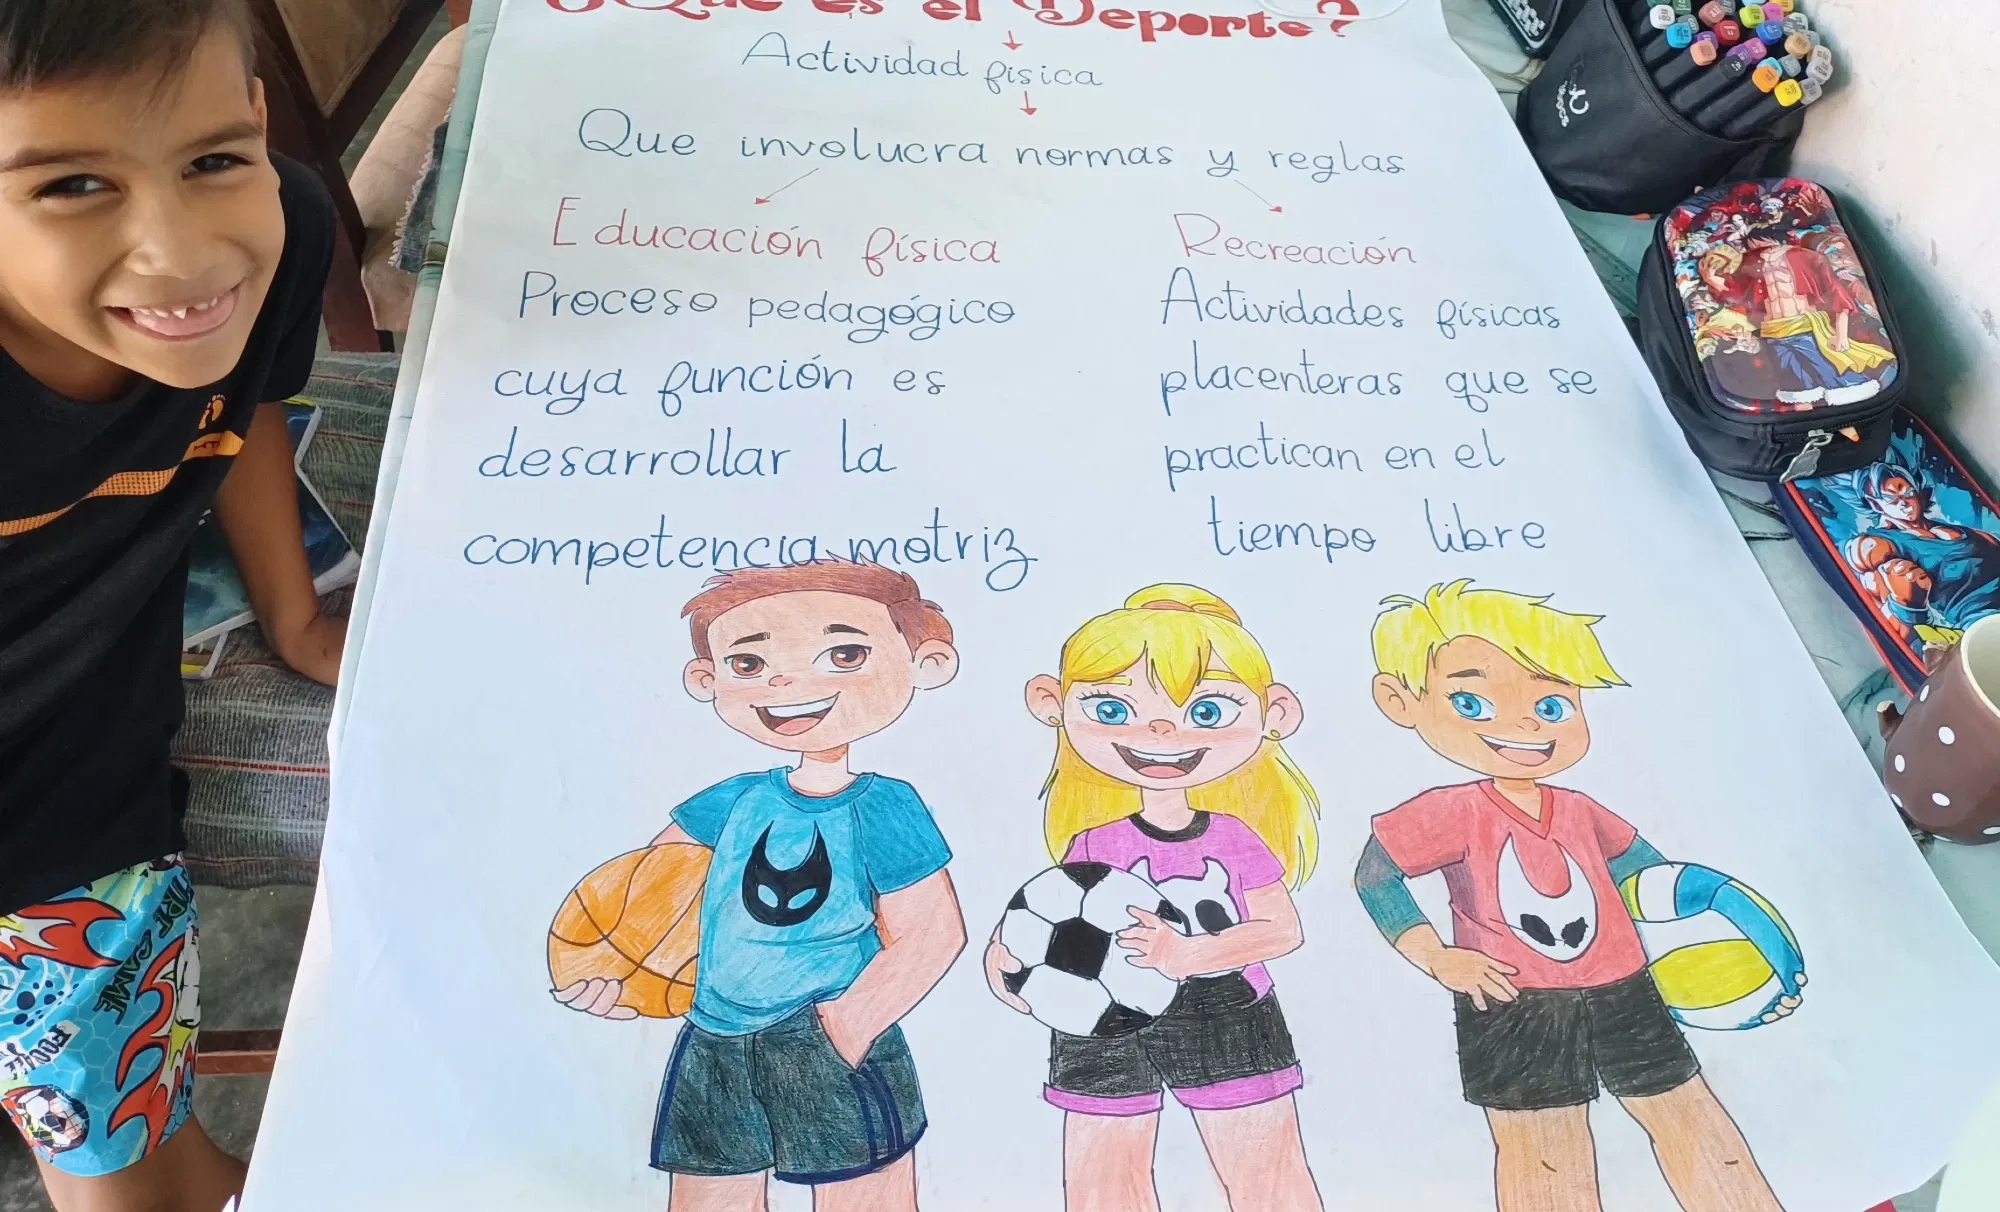 ¿Qué es el Deporte?
Actividad física
Que involucra normas y reglas
Educación física
Proceso pedagógico
cuya función es
desarrollar la
competencia motriz
Recreación
Actividades físicas
placenteras que se
practican en el
tiempo libre
GAME